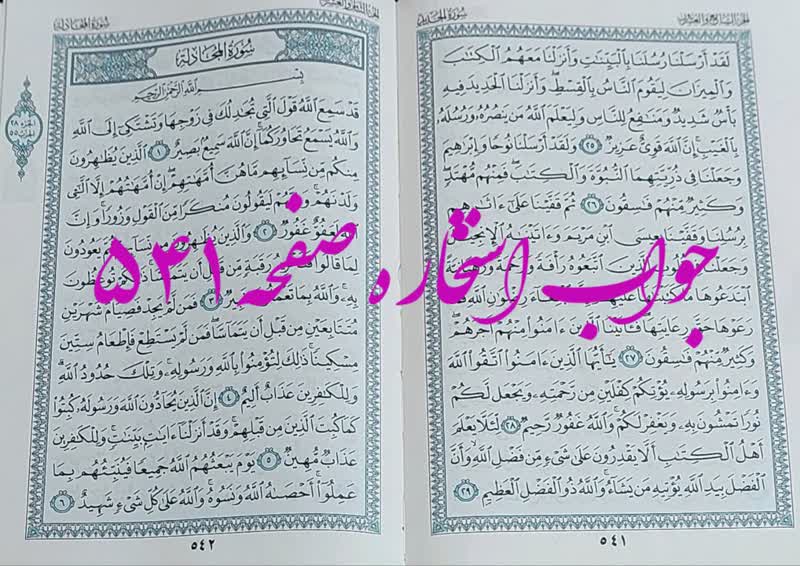 الجزء السابع والعشرون
سورة الحديد
لَقَدْ أَرْسَلْنَا رُسُلَنَا بِالْبَيِّنَاتِ وَأَنزَلْنَا مَعَهُمُ الْكِتَابَ
وَالْمِيزَانَ لِيَقُومَ النَّاسُ بِالْقِسْطِ وَأَنزَلْنَا الْحَدِيدَ فِيهِ
بَأْسٌ شَدِيدٌ وَمَنَافِعُ لِلنَّاسِ وَلِيَعْلَمَ اللَّهُ مَن يَنصُرُهُ وَرُسُلَهُ
بِالْغَيْبِ إِنَّ اللَّهَ قَوِيٌّ عَزِيزٌ ٢٥ وَلَقَدْ أَرْسَلْنَا نُوحًا وَإِبْرَاهِيمَ
وَجَعَلْنَا فِي ذُرِّيَّتِهِمَا النُّبُوَّةَ وَالْكِتَابَ فَمِنْهُم مُّهْتَدٍ
وَكَثِيرٌ مِّنْهُمْ فَاسِقُونَ ٢٦ ثُمَّ قَفَّيْنَا عَلَىٰ آثَارِهِم
بِرُسُلِنَا وَقَفَّيْنَا بِعِيسَى ابْنِ مَرْيَمَ وَآتَيْنَاهُ الْإِنجِيلَ
وَجَعَلْنَا الَّذِينَ اتَّبَعُوهُ رَأْفَةً وَرَحْمَةً وَرَهْبَانِيَّةً
ابْتَدَعُوهَا رِضْوَانِ اللَّهِ فَمَا
رَعَوْهَا حَقَّ رِعَايَتِهَا فَآتَيْنَا الَّذِينَ آمَنُوا مِنْهُمْ أَجْرَهُمْ
وَكَثِيرٌ مِّنْهُمْ فَاسِقُونَ ٢٧ يَا أَيُّهَا الَّذِينَ آمَنُوا اتَّقُوا اللَّهَ
وَآمِنُوا بِرَسُولِهِ يُؤْتِكُمْ كِفْلَيْنِ مِن رَّحْمَتِهِ وَيَجْعَل لَّكُمْ
نُورًا تَمْشُونَ بِهِ وَيَغْفِرْ لَكُمْ وَاللَّهُ غَفُورٌ رَّحِيمٌ ٢٨ لِّئَلَّا يَعْلَمَ
أَهْلُ الْكِتَابِ أَلَّا يَقْدِرُونَ عَلَىٰ شَيْءٍ مِّن فَضْلِ اللَّهِ وَأَنَّ
الْفَضْلَ بِيَدِ اللَّهِ يُؤْتِيهِ مَن يَشَاءُ وَاللَّهُ ذُو الْفَضْلِ الْعَظِيمِ ٢٩
٥٤١
جواب استخاره صفحه ۵۴۱
سورة المجادلة
سُورَةُ الْمُجَادلَةِ
بِسْمِ اللَّهِ الرَّحْمَٰنِ الرَّحِيمِ
قَدْ سَمِعَ اللَّهُ قَوْلَ الَّتِي تُجَادِلُكَ فِي زَوْجِهَا وَتَشْتَكِي إِلَى اللَّهِ
وَاللَّهُ يَسْمَعُ تَحَاوُرَكُمَا إِنَّ اللَّهَ سَمِيعٌ بَصِيرٌ ١ الَّذِينَ يُظَاهِرُونَ
مِنكُم مِّن نِّسَائِهِم مَّا هُنَّ أُمَّهَاتِهِمْ إِنْ أُمَّهَاتُهُمْ إِلَّا اللَّائِي
وَلَدْنَهُمْ وَإِنَّهُمْ لَيَقُولُونَ مُنكَرًا مِّنَ الْقَوْلِ وَزُورًا وَإِنَّ
اللَّهَ لَعَفُوٌّ غَفُورٌ ٢ وَالَّذِينَ يُظَاهِرُونَ مِن نِّسَائِهِمْ ثُمَّ يَعُودُونَ
لِمَا قَالُوا رَقَبَةٍ مِّن قَبْلِ أَن يَتَمَاسَّا تُوعَظُونَ
بِهِ وَاللَّهُ بِمَا تَعْمَلُونَ خَبِيرٌ ٣ فَمَن لَّمْ يَجِدْ فَصِيَامُ شَهْرَيْنِ
مُتَتَابِعَيْنِ مِن قَبْلِ أَن يَتَمَاسَّا فَمَن لَّمْ يَسْتَطِعْ فَإِطْعَامُ سِتِّينَ
مِسْكِينًا ذَٰلِكَ لِتُؤْمِنُوا بِاللَّهِ وَرَسُولِهِ وَتِلْكَ حُدُودُ اللَّهِ
وَلِلْكَافِرِينَ عَذَابٌ أَلِيمٌ ٤ إِنَّ الَّذِينَ يُحَادُّونَ اللَّهَ وَرَسُولَهُ كُبِتُوا
كَمَا كُبِتَ الَّذِينَ مِن قَبْلِهِمْ وَقَدْ أَنزَلْنَا آيَاتٍ بَيِّنَاتٍ وَلِلْكَافِرِينَ
عَذَابٌ مُّهِينٌ ٥ يَوْمَ يَبْعَثُهُمُ اللَّهُ جَمِيعًا فَيُنَبِّئُهُم بِمَا
عَمِلُوا أَحْصَاهُ اللَّهُ وَنَسُوهُ وَاللَّهُ عَلَىٰ كُلِّ شَيْءٍ شَهِيدٌ ٦
٥٤٢